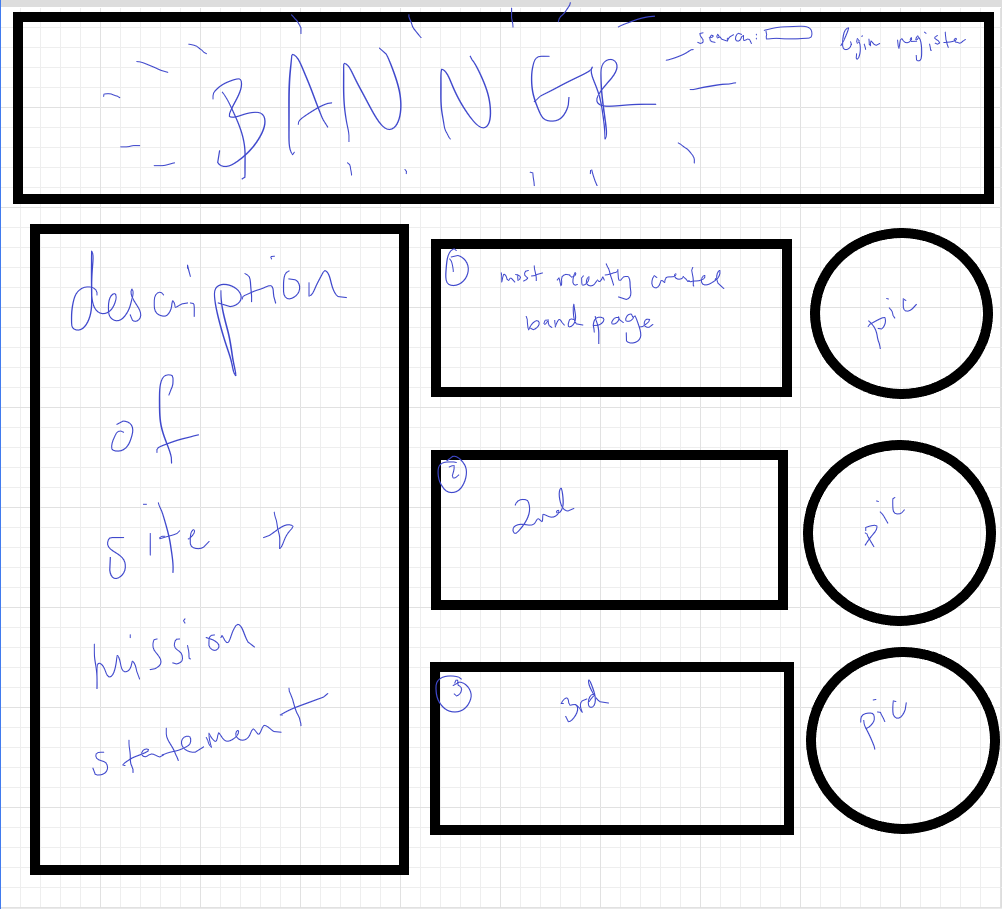 search: login register
BANNER
description
of
site +
mission
statement
1 most recently created
band page
pic
2
2nd
pic
3
3rd
pic